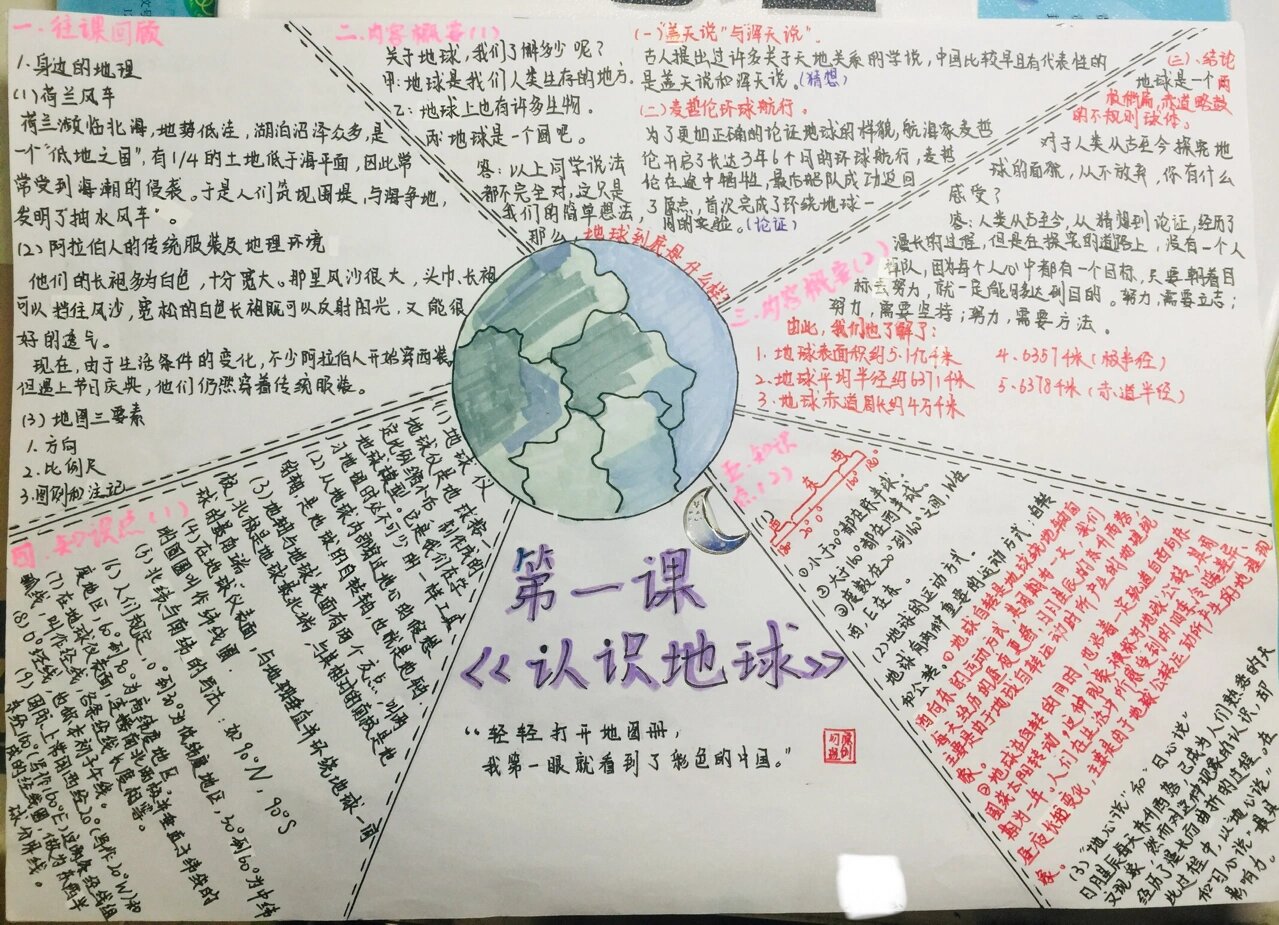 一、往课回顾
1.身边的地理
(1)荷兰风车
荷兰濒临北海,地势低洼,湖泊沼泽众多,是
一个"低地之国",有1/4的土地低于海平面,因此常
常受到海潮的侵袭。于是人们筑坝围堤,与海争地,
发明了抽水风车"。
(2)阿拉伯人的传统服装及地理环境
他们的长袍多为白色,十分宽大。那里风沙很大,头巾、长袍
可以挡住风沙,宽松的白色长袍既可以反射阳光,又能很
好的透气。
现在,由于生活条件的变化,不少阿拉伯人开始穿西装,
但遇上节日庆典,他们仍然穿着传统服装。
(3)地图三要素
1.方向
2.比例尺
3.图例和注记
二、内容概要(1)
关于地球,我们了解多少呢?
甲:地球是我们人类生存的地方。
乙:地球上也有许多生物。
丙:地球是一个圆吧。
答:以上同学说法
都不完全对,这只是
我们的简单想法,
那么,地球到底是什么样?
(一)"盖天说"与"浑天说"。
古人提出过许多关于天地关系的学说,中国比较早且有代表性的
是盖天说和浑天说。(猜想)
(二)麦哲伦环球航行。
为了更加正确的论证地球的样貌,航海家麦哲
伦开启了长达3年6个月的环球航行,麦哲
伦在途中牺牲,最后船队成功返回
了原点,首次完成了环绕地球一
周的实验。(论证)
(三)、结论
地球是一个两
极稍扁,赤道略鼓
的不规则球体。
对于人类从古至今探究地
球的面貌,从不放弃,你有什么
感受?
答:人类从古至今,从猜想到论证,经历了
漫长的过程,但是在探究的道路上,没有一个人
掉队,因为每个人心中都有一个目标,只要朝着目
标去努力,就一定能够达到目的。努力,需要立志;
努力,需要坚持;努力,需要方法。
三、内容概要(2)
由此,我们也了解了:
1.地球表面积约5.1亿千米
2.地球平均半径约6371千米
3.地球赤道周长约4万千米
4.6357千米(极半径)
5.6378千米(赤道半径)
四、知识点(1)
(1)地球仪
地球仪是地球按一
定比例缩小后,制作成的
地球模型。它是我们在学
习地理时必不可少的一样工具
(2)从地球内部穿过地心的假想
的轴,是地球的自转轴,也就是地轴
(3)地轴与地球表面有两个交点,叫两
极,北极是地球最北端,与其相对的南极是地
球的最南端。
(4)在地球仪表面,与地轴垂直并环绕地球一周
的圆圈叫作纬线圈。
(5)北纬与南纬的写法:如90°N,90°S
(6)人们规定,0°到30°为低纬度地区,30°到60°为中纬
度地区,60°到90°为高纬度地区。
(7)在地球仪表面,连接南北两极,并垂直于纬线的
弧线,叫作经线,各条经线长度相等。
(8)0°经线,也称本初子午线。
(9)国际上常用西经20°(写作20°W)和
东经160°(写作160°E)这两条经线组
成的经线圈,做为东西半
球分界线。
五、知识
点(2)
(1)
西
东
西
180° 20° 0° 160° 180°
①小于20°都在东半球
②大于160°都在西半球。
③度数在20°到160°之间,W在
西,E在东。
(2)地球的运动方式。
地球有两种重要的运动方式:自转
和公转。①地球自转是地球绕地轴自
西向东的运动方式,其周期为一天。我们
每天经历的昼夜更替、日月星辰的东升西落,
主要是由于地球自转运动时所产生的地理现
象。
②地球在自转的同时,也沿着一定轨道自西向东
围绕太阳转动,这种现象被称为地球公转,其周
期为一年。人们在生活中所感受到的四季冷暖差异、
昼夜长短变化,主要是由于地球公转运动所产生的地理现
象。
(3)"地心说"和"日心说"
日月星辰每天东升西落,已成为人们熟悉的天
文现象,然而对这种现象的认识,却
经历了漫长而曲折的过程。在
此过程中,以"地心说"
和"日心说"最具
影响力"
第一课
《认识地球》
"轻轻打开地图册,
我第一眼就看到了彩色的中国。"